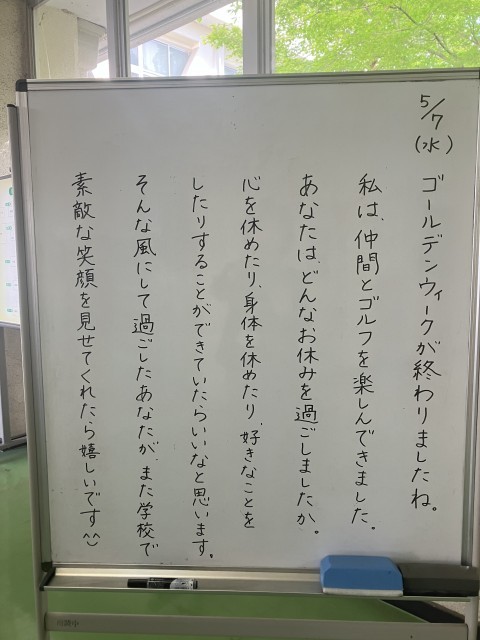 5/7(水)
ゴールデンウィークが終わりましたね。
私は、仲間とゴルフを楽しんできました。
あなたは、どんなお休みを過ごしましたか。
心を休めたり、身体を休めたり、好きなことを
したりすることができていたらいいなと思います。
そんな風にして過ごしたあなたが、また学校で
素敵な笑顔を見せてくれたら嬉しいです^^